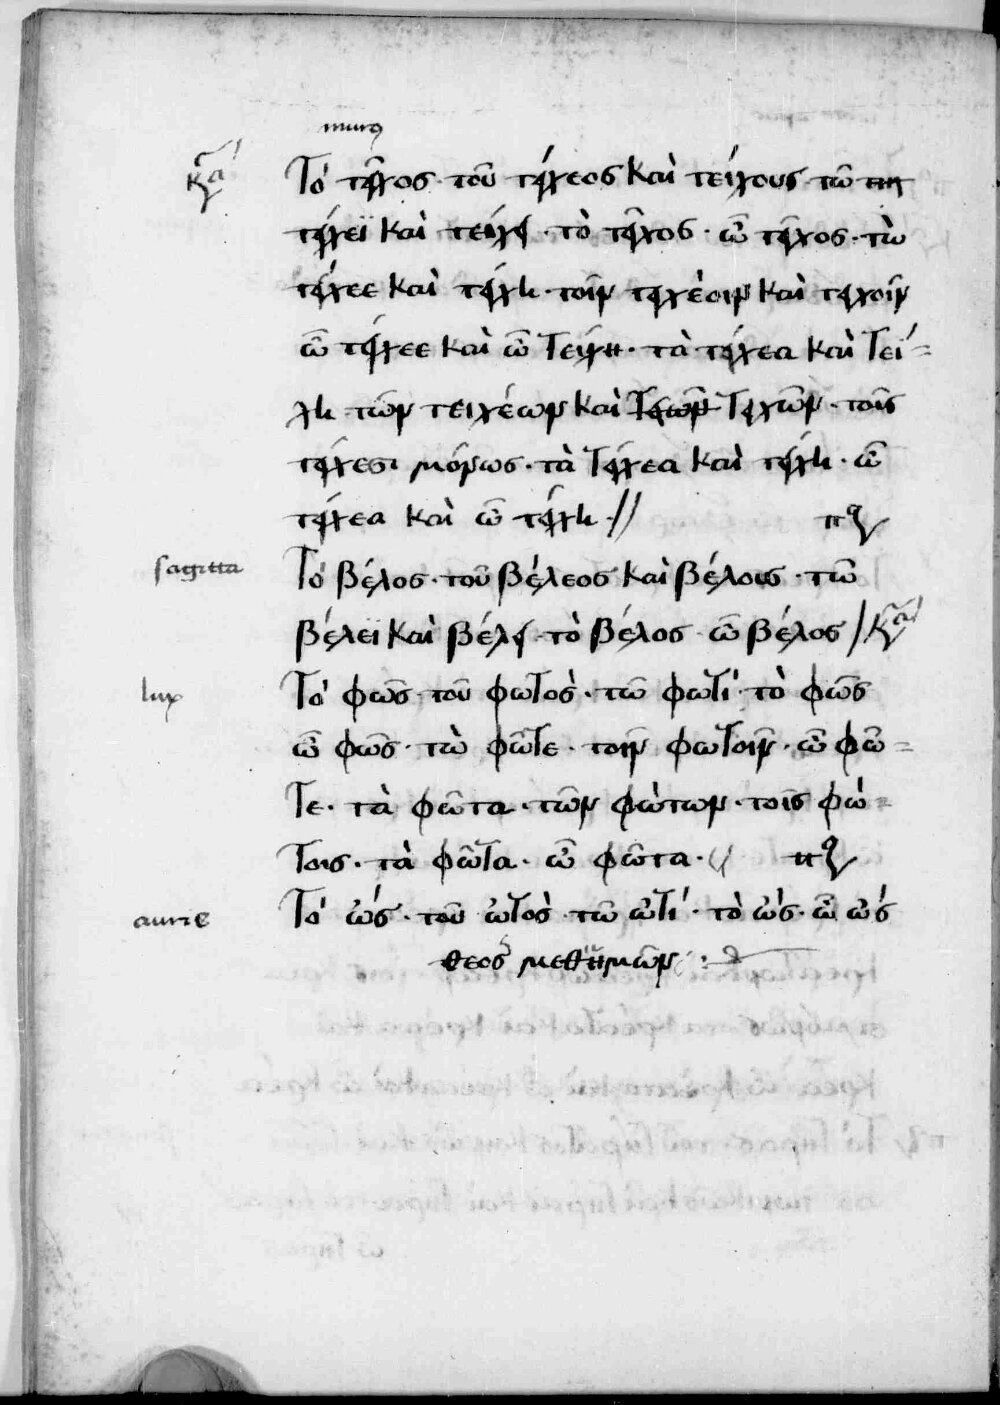 murus
Τὸ τεῖχος · τοῦ τείχεος καὶ τείχους · τῶ
τείχεϊ καὶ τείχει · τὸ τεῖχος · ὦ τεῖχος · τὼ
τείχεε καὶ τείχη · τοῖν τειχέοιν καὶ τειχοῖν
ὦ τείχεε καὶ ὦ τείχη · τὰ τείχεα καὶ τεί=
χη · τῶν τειχέων καὶ τειχῶν · τοῖς
τείχεσι μόνως · τὰ τείχεα καὶ τείχη · ὦ
τείχεα καὶ ὦ τείχη · //
sagitta Τὸ βέλος · τοῦ βέλεος καὶ βέλους · τῶ
βέλεϊ καὶ βέλει · τὸ βέλος · ὦ βέλος /
lux Τὸ φῶς · τοῦ φωτὸς · τῶ φωτί · τὸ φῶς
ὦ φῶς · τὼ φῶτε · τοῖν φωτοῖν · ὦ φῶ=
τε · τὰ φῶτα · τῶν φώτων · τοῖς φώ=
τοις · τὰ φῶτα · ὦ φῶτα · //
auris Τὸ ὠς · τοῦ ὠτὸς · τῶ ὠτί · τὸ ὠς · ὦ ὠς
θεος μεθημῶν :